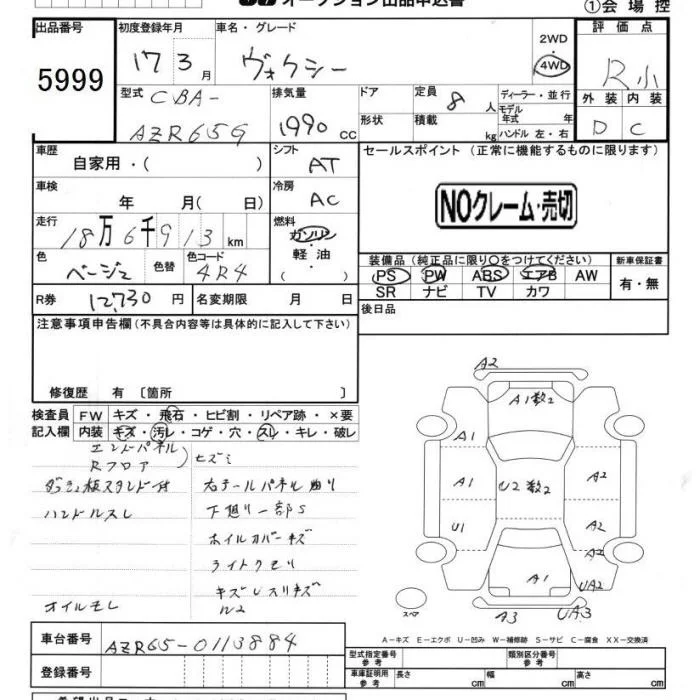 オークション出品申込書
①会場控
出品番号
5999
初度登録年月
17 3 月
車名・グレード
ヴォクシー
2WD
・
4WD
評価点
R小
外装 内装
D C
型式
CBA-
AZR65G
排気量
1990 cc
ドア
形状
定員
8 人
積載
kg
ディーラー・並行
モデル
年式 年
ハンドル 左・右
車歴
自家用・( )
シフト
AT
車検
年 月( 日)
冷房
AC
走行
18万6千913 km
燃料
ガソリン
・
軽油
・
( )
色
ベージュ
色替
色コード
4R4
R券
12,730 円
名変期限 月 日
セールスポイント (正常に機能するものに限ります)
NOクレーム・売切
装備品 (純正品に限り○をつけてください)
新車保証書
PS PW ABS エアB AW
SR ナビ TV カワ
有・無
後日品
注意事項申告欄 (不具合内容等は具体的に記入して下さい)
修復歴 有 〔箇所 〕
検査員
記入欄
FW キズ・飛石・ヒビ割・リペア跡・×要
内装 キズ・汚レ・コゲ・穴・スレ・キレ・破レ
エンドパネル
Rフロア
ヒズミ
ダッシュ板スタンド付
右テールパネル曲り
ハンドルスレ
下廻り一部S
ホイルカバーキズ
ライトクモリ
オイルモレ
A2
A1 数2
A1
A1
U2 数2
A2
U1
A2
A2
A1
UA2
スペア
A3
UA3
A-キズ E-エクボ U-凹み W-補修跡 S-サビ C-腐食 XX-交換済
車台番号
AZR65-0113884
登録番号
型式指定番号
参考
類別区分番号
参考
車庫証明用
参考
長さ cm
幅 cm
高さ cm